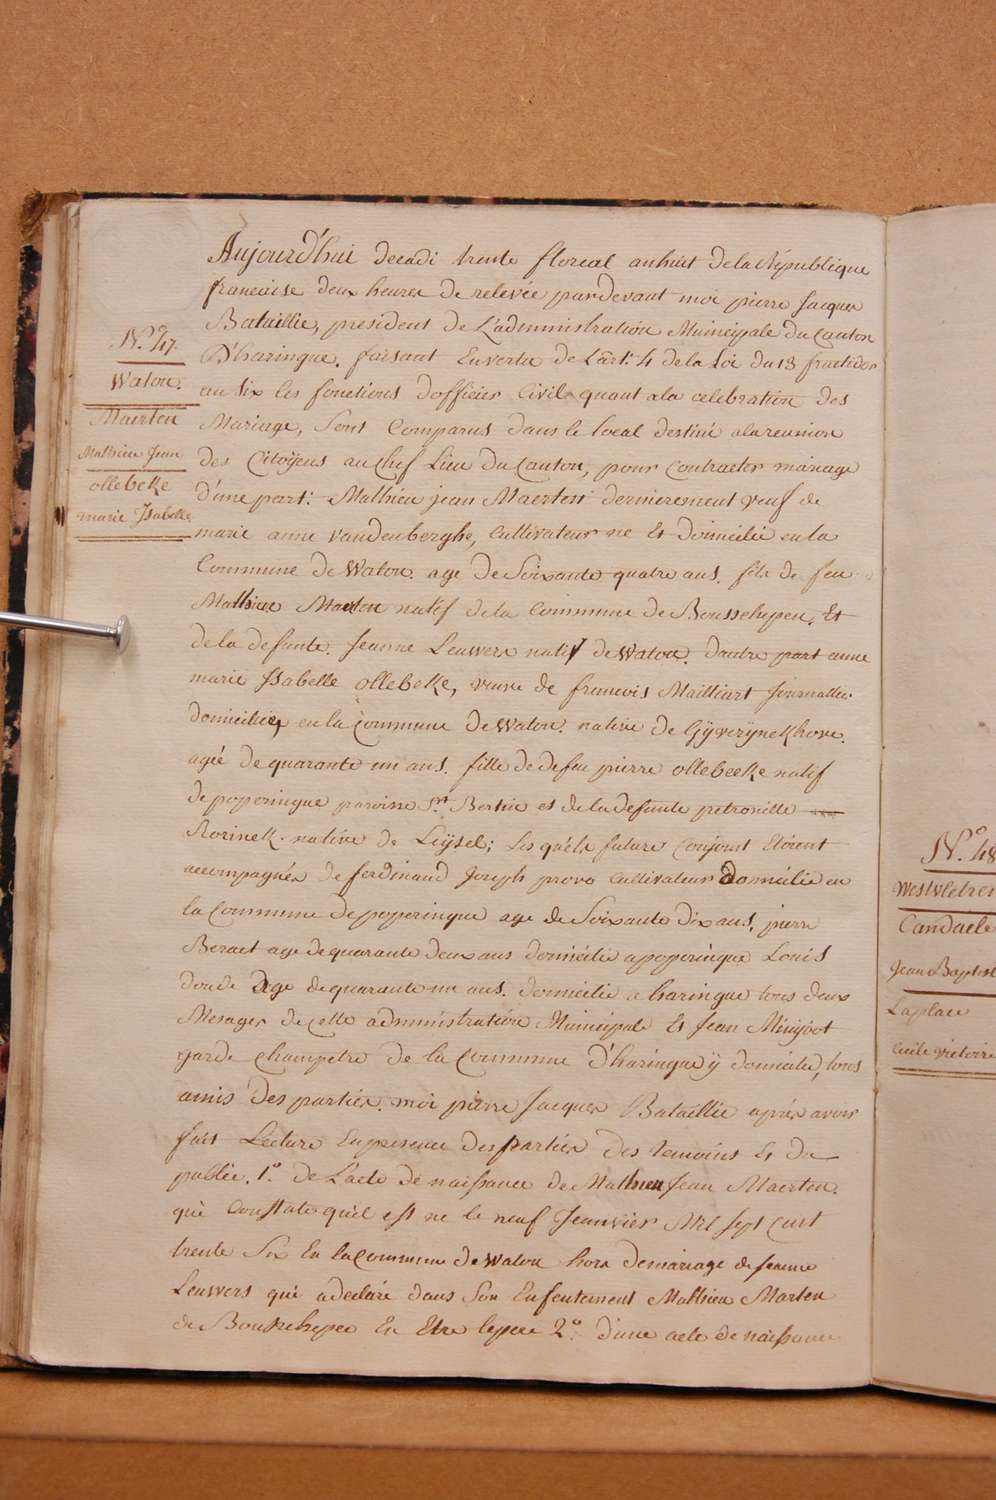 N.º 47.
Watou.
Maerten
Mathieu Jean
ollebeke
marie Isabelle
Aujourd'hui decadi trente floreal an huit de la République
francaise deux heures de relevée pardevant moi pierre Jacques
Bataillie, president de L'administration Municipale du Canton
D'haringue, faisant En vertu de L'art: 4 de la Loi du 13 fructidor
an Six les fonctions d'officier Civil quant a la celebration des
Mariage, Sont Comparus dans le local destiné a la reunion
des Citoÿens au Chef Lieu du Canton, pour Contracter mariage
d'une part: Mathieu jean Maerten dernierement veuf de
marie anne vandenberghe, Cultivateur ne Et domicilié en la
Commune de Watou. age de Soixante quatre ans. fils de feu
Mathieu Maerten natif de la Commune de Boussehepen, Et
de la defunte. Jeanne Leuwers natif de Watou. dautre part anne
marie Isabelle ollebeke, veuve de francois Mailliart Journallier
domiciliée en la Commune de Watou. native de Gÿverÿnekhove.
agée de quarante un ans. fille de defeu pierre ollebeeke natif
de poperingue paroisse St. Bertin et de la defunte petronille
Rorinek. native de Leÿsel; Les quéls future Conjoint Etóient
accompagnés de ferdinand Joseph provo Cultivateur Domicilié en
la Commune de poperingue age de Soixante dix ans, pierre
Beraet age de quarante deux ans domicilie a poperingue Louis
doude age de quarante un ans. domicilie a haringue tous deux
Mesager de Cette administration Municipale Et Jean Minÿoot
garde Champetre de la Commune d'haringue ÿ domicilié, tous
amis des parties. moi pierre Jacques Bataillie aprés avoir
fait Lecture En presence des parties des temoins Et du
public. 1.º de L'acte de naissance de Mathieu Jean Maerten.
qui Constate qu'il est ne le neuf Jeanvier Mil Sept Cent
trente Six En la Commune de Watou hors de mariage de Jeanne
Leuwers qui a declaré dans Son Enfentement Mathieu Marten
de Bousehepee En Etre le pere 2.º d'une acte de naissance
N.º 48
Westvleteren
Candaele
Jean Baptist
Laplace
Cecile victoire